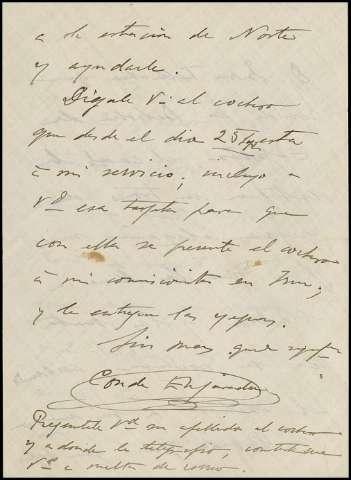 a la estación de Norte
y ayudarle.
Dígale Vd al cochero
que desde el dia 25 esta
á mi servicio; incluyo a
Vd esa tarjeta para que
con ella se presente el cochero
á mi en Irun;
y le entregue las yeguas.
Sin mas que
Conde
Pregúntele Vd su apellido al cochero
y a donde le telegrafio,
Vd a vuelta de correo.